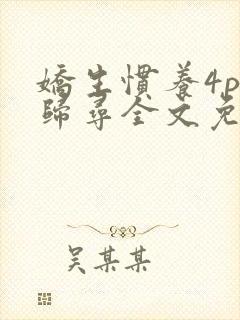 嬌生慣養4p
歸尋全文免
吴某某